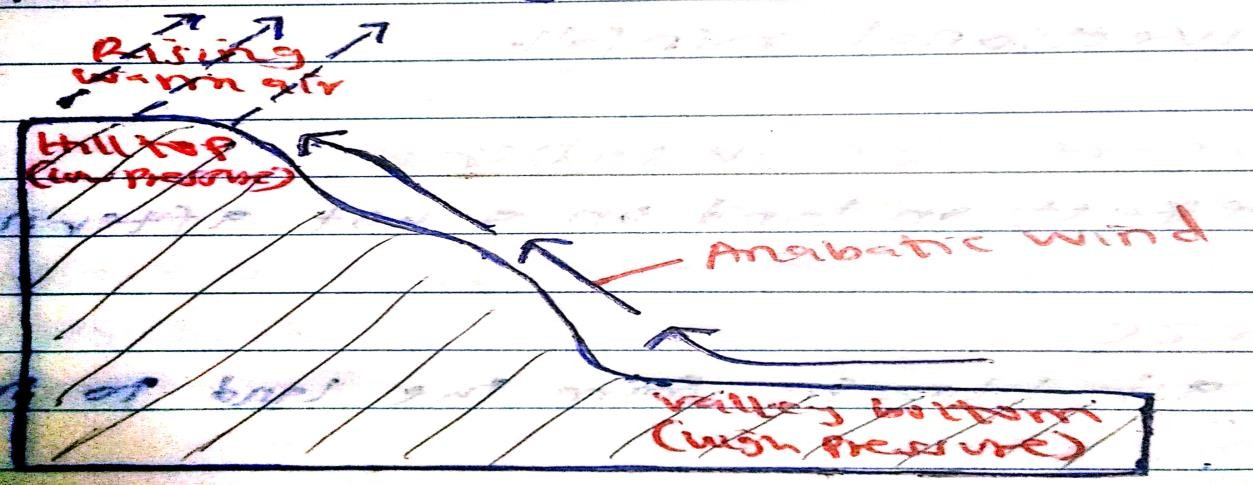 Rising
warm air
Hill top
(low pressure)
Anabatic wind
Valley bottom
(high pressure)